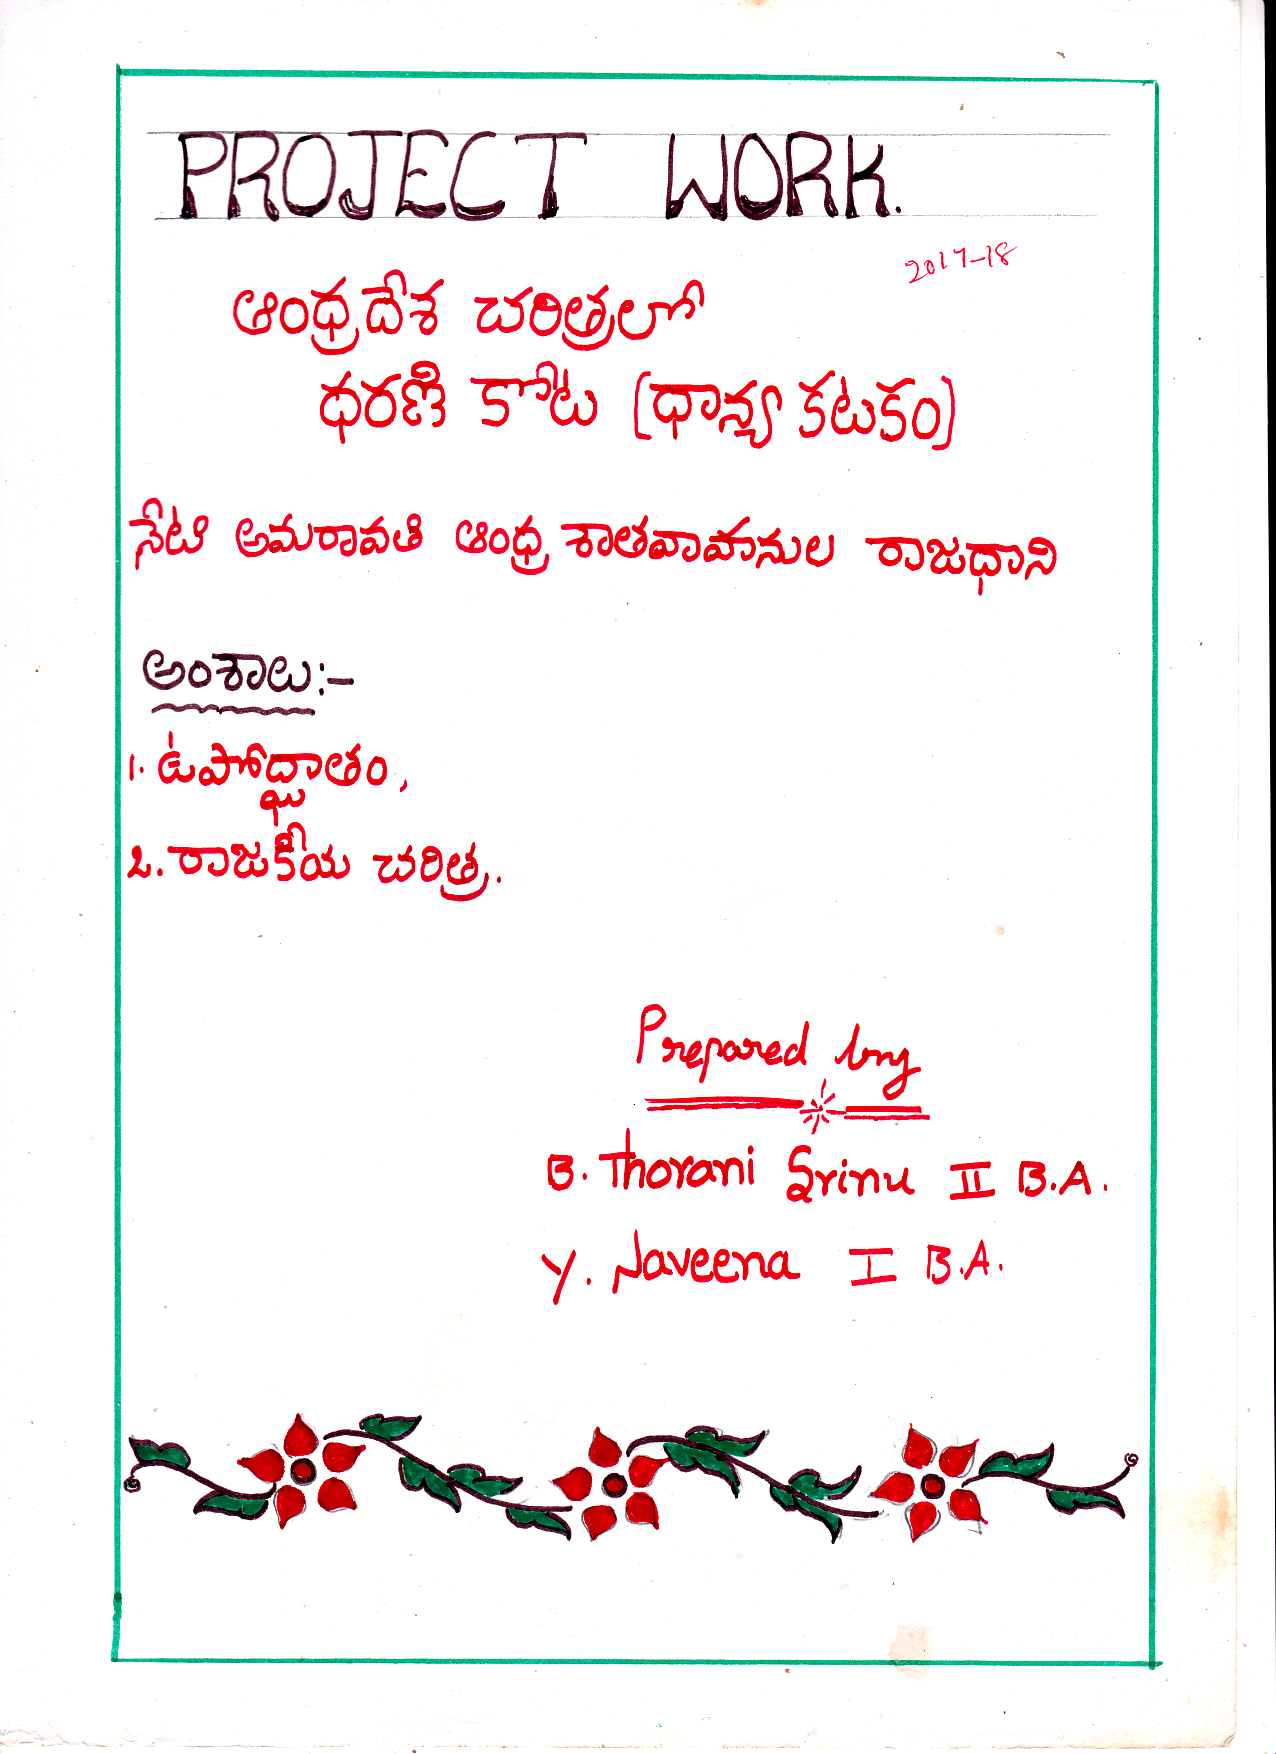 PROJECT WORK.
2017-18
ఆంధ్రదేశ చరిత్రలో
ధరణి కోట (ధాన్య కటకం)
నేటి అమరావతి ఆంధ్ర శాతవాహనుల రాజధాని
అంశాలు:-
1. ఉపోద్ఘాతం,
2. రాజకీయ చరిత్ర.
Prepared by
B. Thorani Srinu II B.A.
Y. Naveena I B.A.